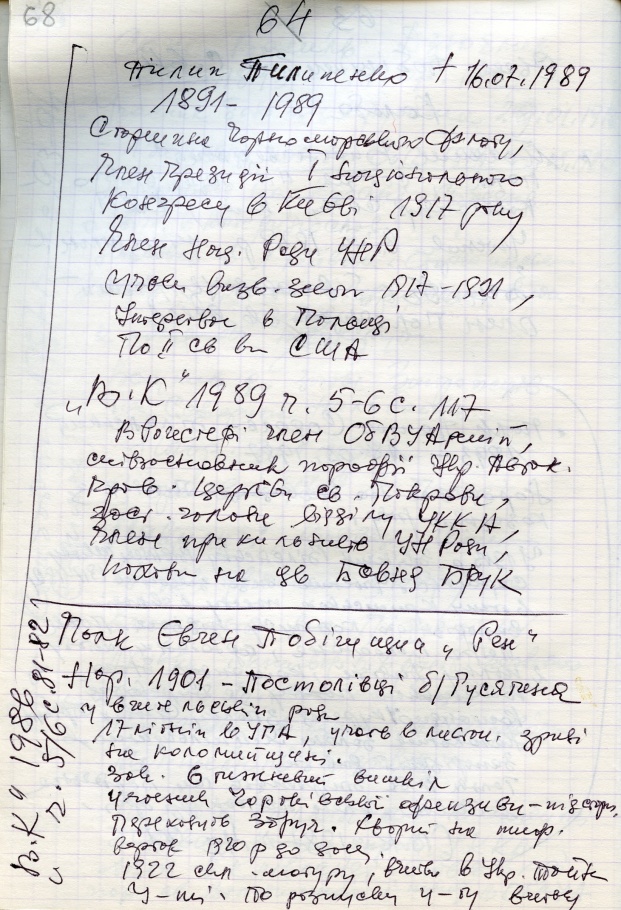 68
64
Пилип Пилипенко † 16.07.1989
1891 - 1989
Старшина Чорноморського Флоту,
Член Президії I Національного
Конгресу в Києві 1917 року
Член Нац. Ради УНР
Учасн визв. змаг 1917-1921,
Інтернов в Польщі
По II св ві США
"В.К" 1989 ч. 5-6 с. 117
В Рочестері член ОбВУАрмій,
співзасновник парафії Укр. Авток.
Прав. Церкви св. Покрови,
заст. голови відділу УККА,
Член прихильників УН Ради,
похов на цв Бавнд Брук
Полк Євген Побігущий "Рен"
Нар. 1901 - Постолівці б/Гусятина
у вчительській родині
17 літній в УГА, участь в листоп. зриві
на Коломийщині.
Зак. 6 тижневий вишкіл
учасник Чортківської офензиви - підстарш,
Перейшов Збруч. Хворів на тиф.
вертає 1920 р до дому
1922 склав матуру, вчився в Укр. Тайн
У-ті. По розпуску у-ту
"В.К" 1986
ч. 5/6 с. 81-82